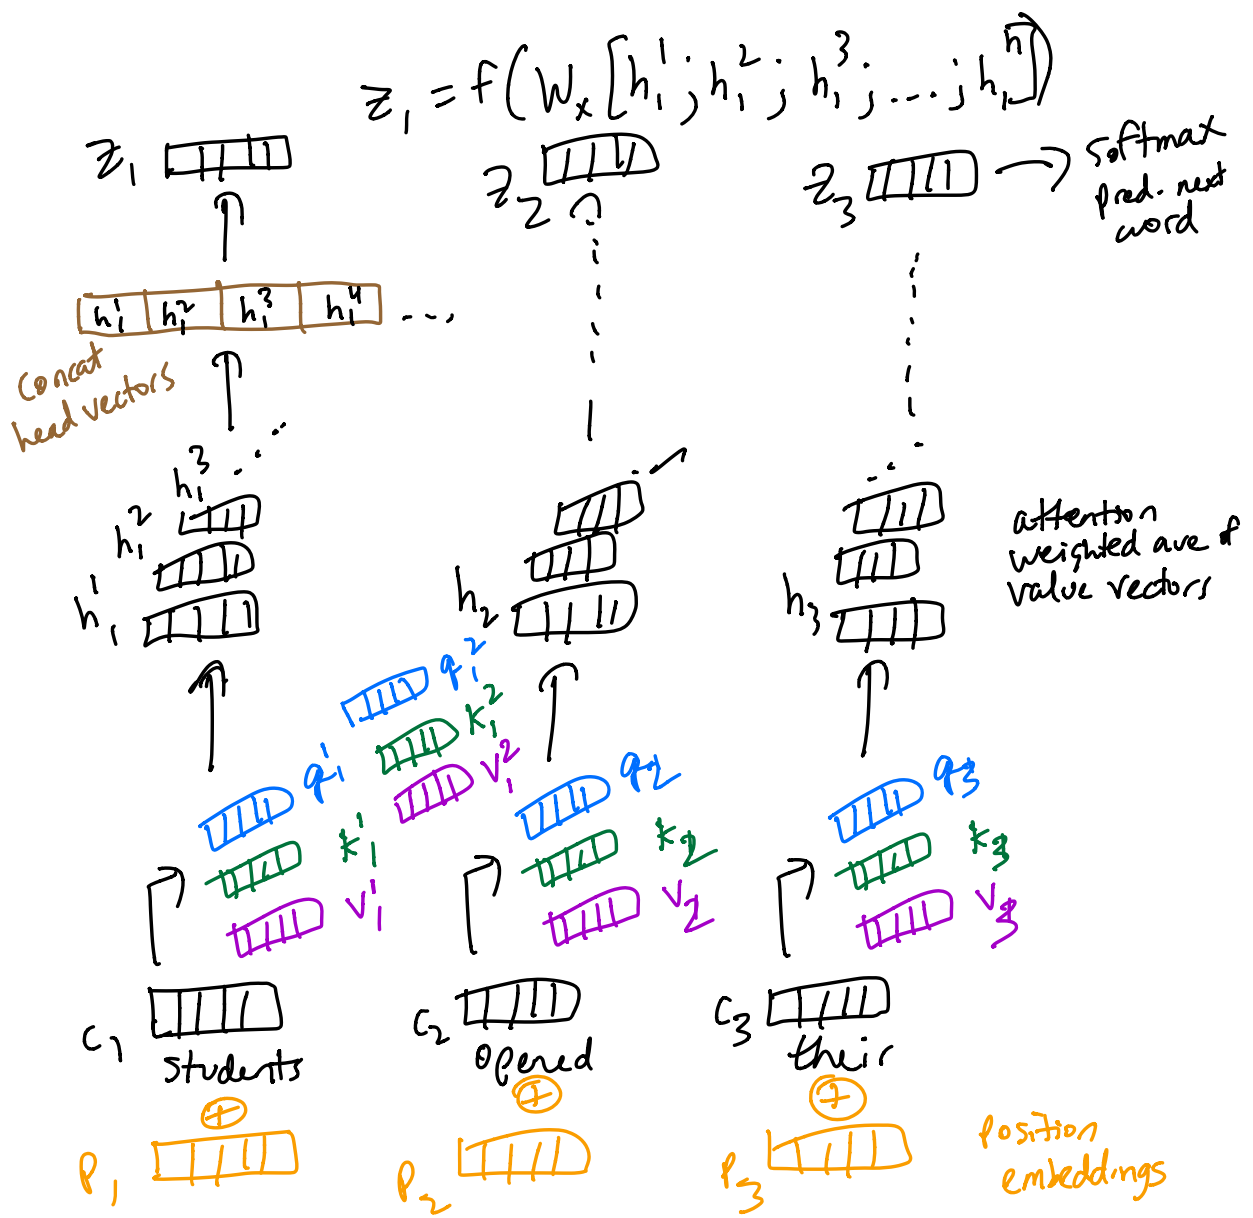 z₁ = f(Wₓ[h₁¹; h₁²; h₁³; ...; h₁ⁿ])
z₁
z₂
z₃
softmax
pred. next
word
h₁¹ h₁² h₁³ h₁⁴ ...
concat
head vectors
h₁³
h₁²
h₁¹
h₂
h₃
attention
weighted ave of
value vectors
q₁²
k₁²
v₁²
q₁¹
k₁¹
v₁¹
q₂
k₂
v₂
q₃
k₃
v₃
c₁
students
c₂
opened
c₃
their
+ + +
p₁
p₂
p₃
position
embeddings